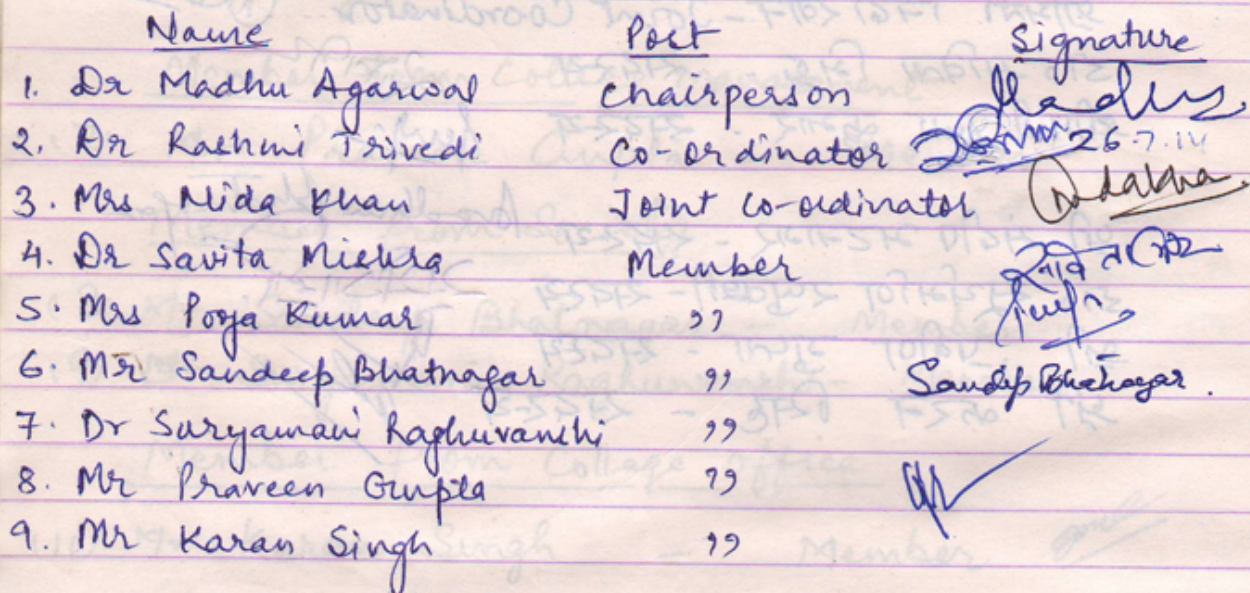 Name Post Signature
1. Dr Madhu Agarwal Chairperson Madhu
2. Dr Rashmi Trivedi Co-ordinator 26.7.14
3. Mrs Nida Khan Joint Co-ordinator Nidakhan
4. Dr Savita Mishra Member
5. Mrs Pooja Kumar ,,
6. Mr Sandeep Bhatnagar ,, Sandeep Bhatnagar.
7. Dr Suryamani Raghuvanshi ,,
8. Mr Praveen Gupta ,,
9. Mr Karan Singh ,,